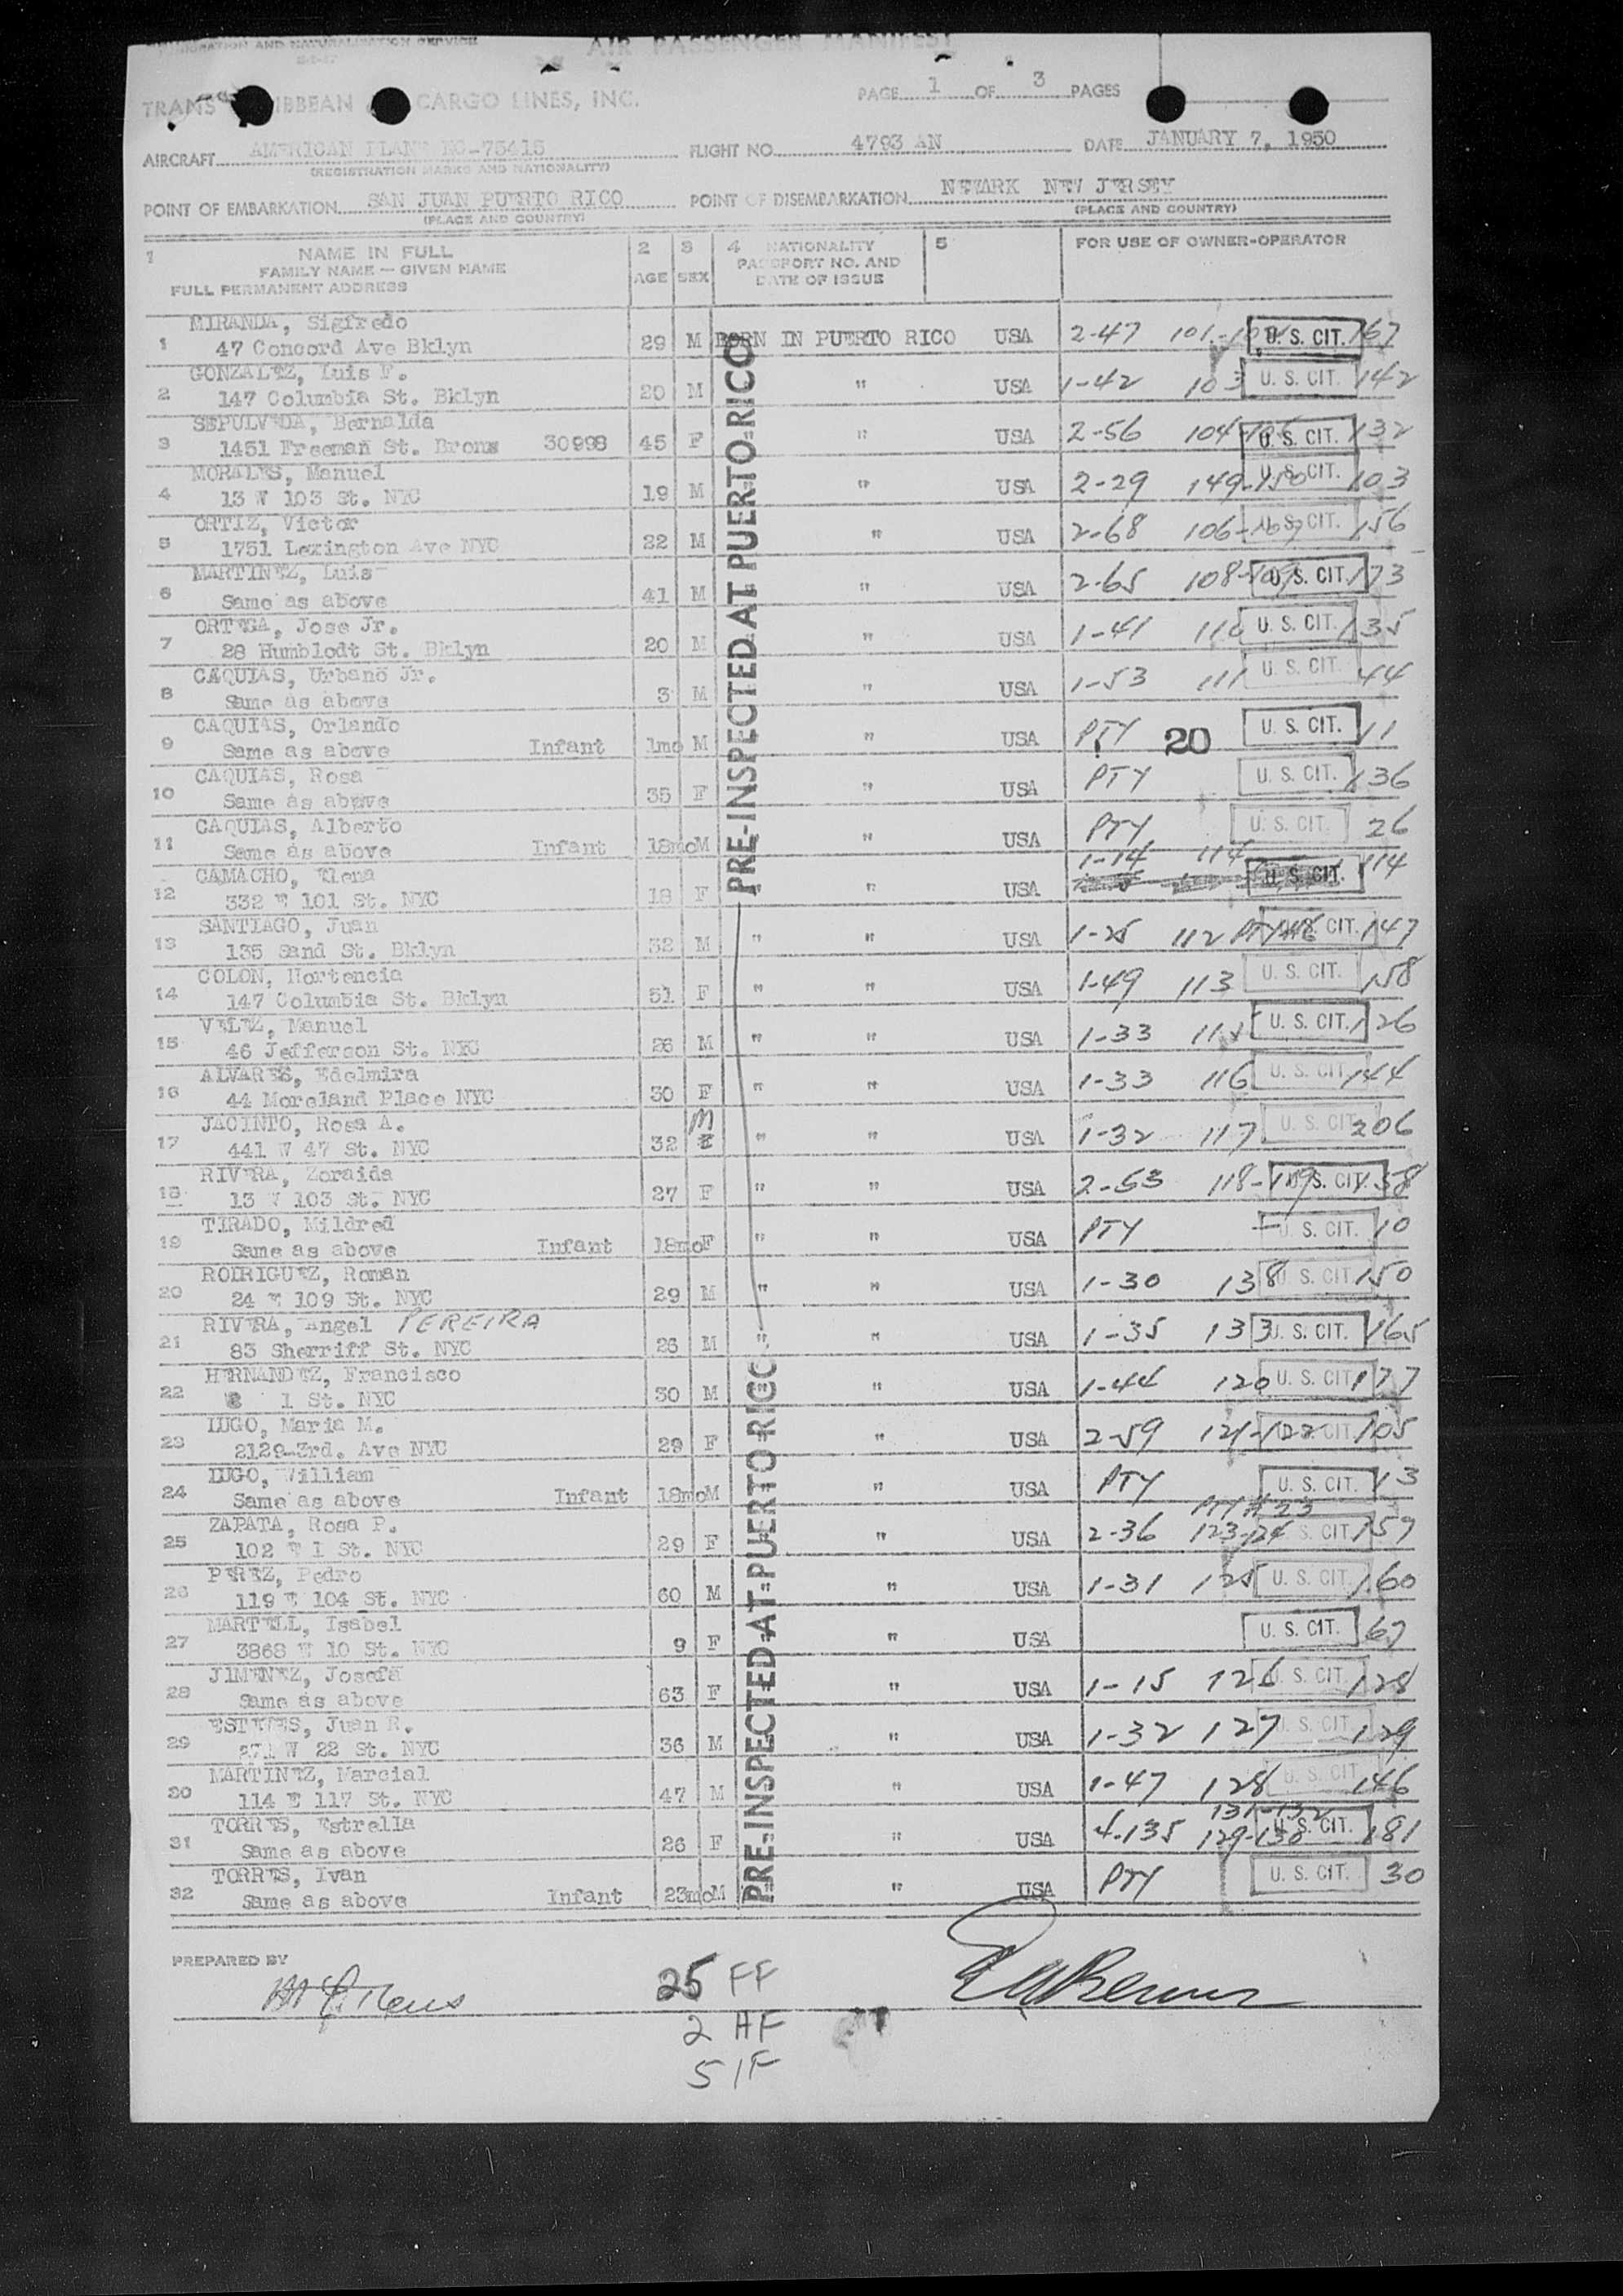 IMMIGRATION AND NATURALIZATION SERVICE AIR PASSENGER MANIFEST
TRANS CARIBBEAN CARGO LINES, INC. PAGE 1 OF 3 PAGES
AIRCRAFT AMERICAN PLANE NC-75415 FLIGHT NO. 4793 AN DATE JANUARY 7, 1950
(REGISTRATION MARKS AND NATIONALITY)
POINT OF EMBARKATION SAN JUAN PUERTO RICO POINT OF DISEMBARKATION NEWARK NEW JERSEY
(PLACE AND COUNTRY) (PLACE AND COUNTRY)
1 NAME IN FULL 2 3 4 NATIONALITY 5 FOR USE OF OWNER-OPERATOR
FAMILY NAME — GIVEN NAME AGE SEX PASSPORT NO. AND
FULL PERMANENT ADDRESS DATE OF ISSUE
PRE-INSPECTED AT PUERTO RICO
MIRANDA, Sigfredo
1 47 Concord Ave Bklyn 29 M BORN IN PUERTO RICO USA 2-47 U. S. CIT. 167
GONZALEZ, Luis F.
2 147 Columbia St. Bklyn 20 M " USA 1-42 103 U. S. CIT. 142
SEPULVEDA, Bernalda
3 1451 Freeman St. Bronx 30998 45 F " USA 2-56 U. S. CIT. 132
MORALES, Manuel
4 13 W 103 St. NYC 19 M " USA 2-29 149-150 U. S. CIT. 103
ORTIZ, Victor
5 1751 Lexington Ave NYC 22 M " USA 2-68 106-107 U. S. CIT. 156
MARTINEZ, Luis
6 Same as above 41 M " USA 2-65 108-109 U. S. CIT. 173
ORTEGA, Jose Jr.
7 28 Humblodt St. Bklyn 20 M " USA 1-41 110 U. S. CIT. 135
CAQUIAS, Urbano Jr.
8 Same as above 3 M " USA 1-53 111 U. S. CIT. 44
CAQUIAS, Orlando
9 Same as above Infant 1mo M " USA PTY 20 U. S. CIT. 11
CAQUIAS, Rosa
10 Same as above 35 F " USA PTY U. S. CIT. 136
CAQUIAS, Alberto
11 Same as above Infant 18mo M " USA PTY U. S. CIT. 26
CAMACHO, Elena 1-14 114
12 332 E 101 St. NYC 18 F " USA U. S. CIT. 114
SANTIAGO, Juan
13 135 Sand St. Bklyn 32 M " " USA 1-25 112 U. S. CIT. 147
COLON, Hortencia
14 147 Columbia St. Bklyn 51 F " " USA 1-49 113 U. S. CIT. 158
VELEZ, Manuel
15 46 Jefferson St. NYC 26 M " " USA 1-33 115 U. S. CIT. 126
ALVARES, Edelmira
16 44 Moreland Place NYC 30 F " " USA 1-33 116 U. S. CIT. 144
JACINTO, Rosa A. M
17 441 W 47 St. NYC 32 " " USA 1-32 117 U. S. CIT. 206
RIVERA, Zoraida
18 13 W 103 St. NYC 27 F " " USA 2-53 118-119 U. S. CIT. 158
TIRADO, Mildred
19 Same as above Infant 18mo F " " USA PTY U. S. CIT. 10
RODRIGUEZ, Roman
20 24 E 109 St. NYC 29 M " " USA 1-30 138 U. S. CIT. 150
RIVERA, Angel PEREIRA
21 83 Sherriff St. NYC 26 M " " USA 1-35 133 U. S. CIT. 165
PRE-INSPECTED AT PUERTO RICO
HERNANDEZ, Francisco
22 1 St. NYC 30 M " USA 1-44 120 U. S. CIT. 177
LUGO, Maria M.
23 2129-3rd. Ave NYC 29 F " USA 2-59 121-122 U. S. CIT. 105
LUGO, William
24 Same as above Infant 18mo M " USA PTY U. S. CIT. 13
ZAPATA, Rosa P. PTY # 23
25 102 E 1 St. NYC 29 F " USA 2-36 123-124 U. S. CIT. 159
PEREZ, Pedro
26 119 E 104 St. NYC 60 M " USA 1-31 125 U. S. CIT. 160
MARTELL, Isabel
27 3868 E 10 St. NYC 9 F " USA U. S. CIT. 67
JIMENEZ, Josefa
28 Same as above 63 F " USA 1-15 126 U. S. CIT. 128
ESTEVES, Juan R.
29 271 W 22 St. NYC 36 M " USA 1-32 127 U. S. CIT. 129
MARTINEZ, Marcial
30 114 E 117 St. NYC 47 M " USA 1-47 128 U. S. CIT. 146
TORRES, Estrella 131-132
31 Same as above 26 F " USA 4-135 129-130 U. S. CIT. 181
TORRES, Ivan
32 Same as above Infant 23mo M " " USA PTY U. S. CIT. 30
PREPARED BY
25 FF
2 HF
5 IF